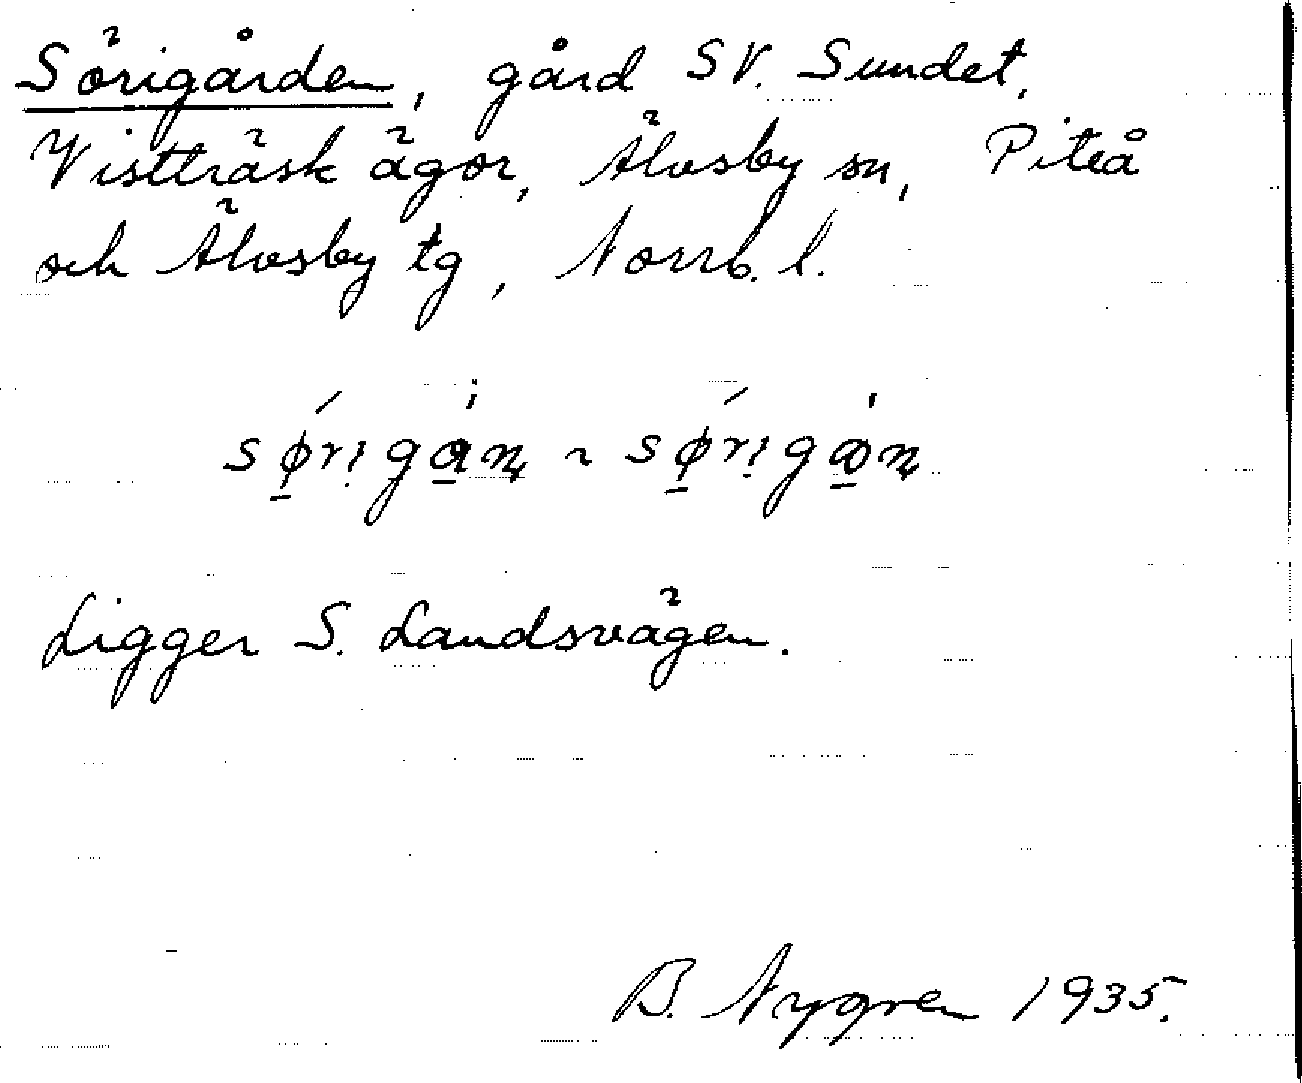 Sörigården, gård SV. Sundet,
Vistträsk ägor, Älvsby sn, Piteå
och Älvsby tg, Norrb. l.
sǿ̱ri̥ga̱̍ɳ ~ sǿ̱ri̥gꝏ̱̍ɳ
Ligger S. Landsvägen.
B. Nygren 1935.